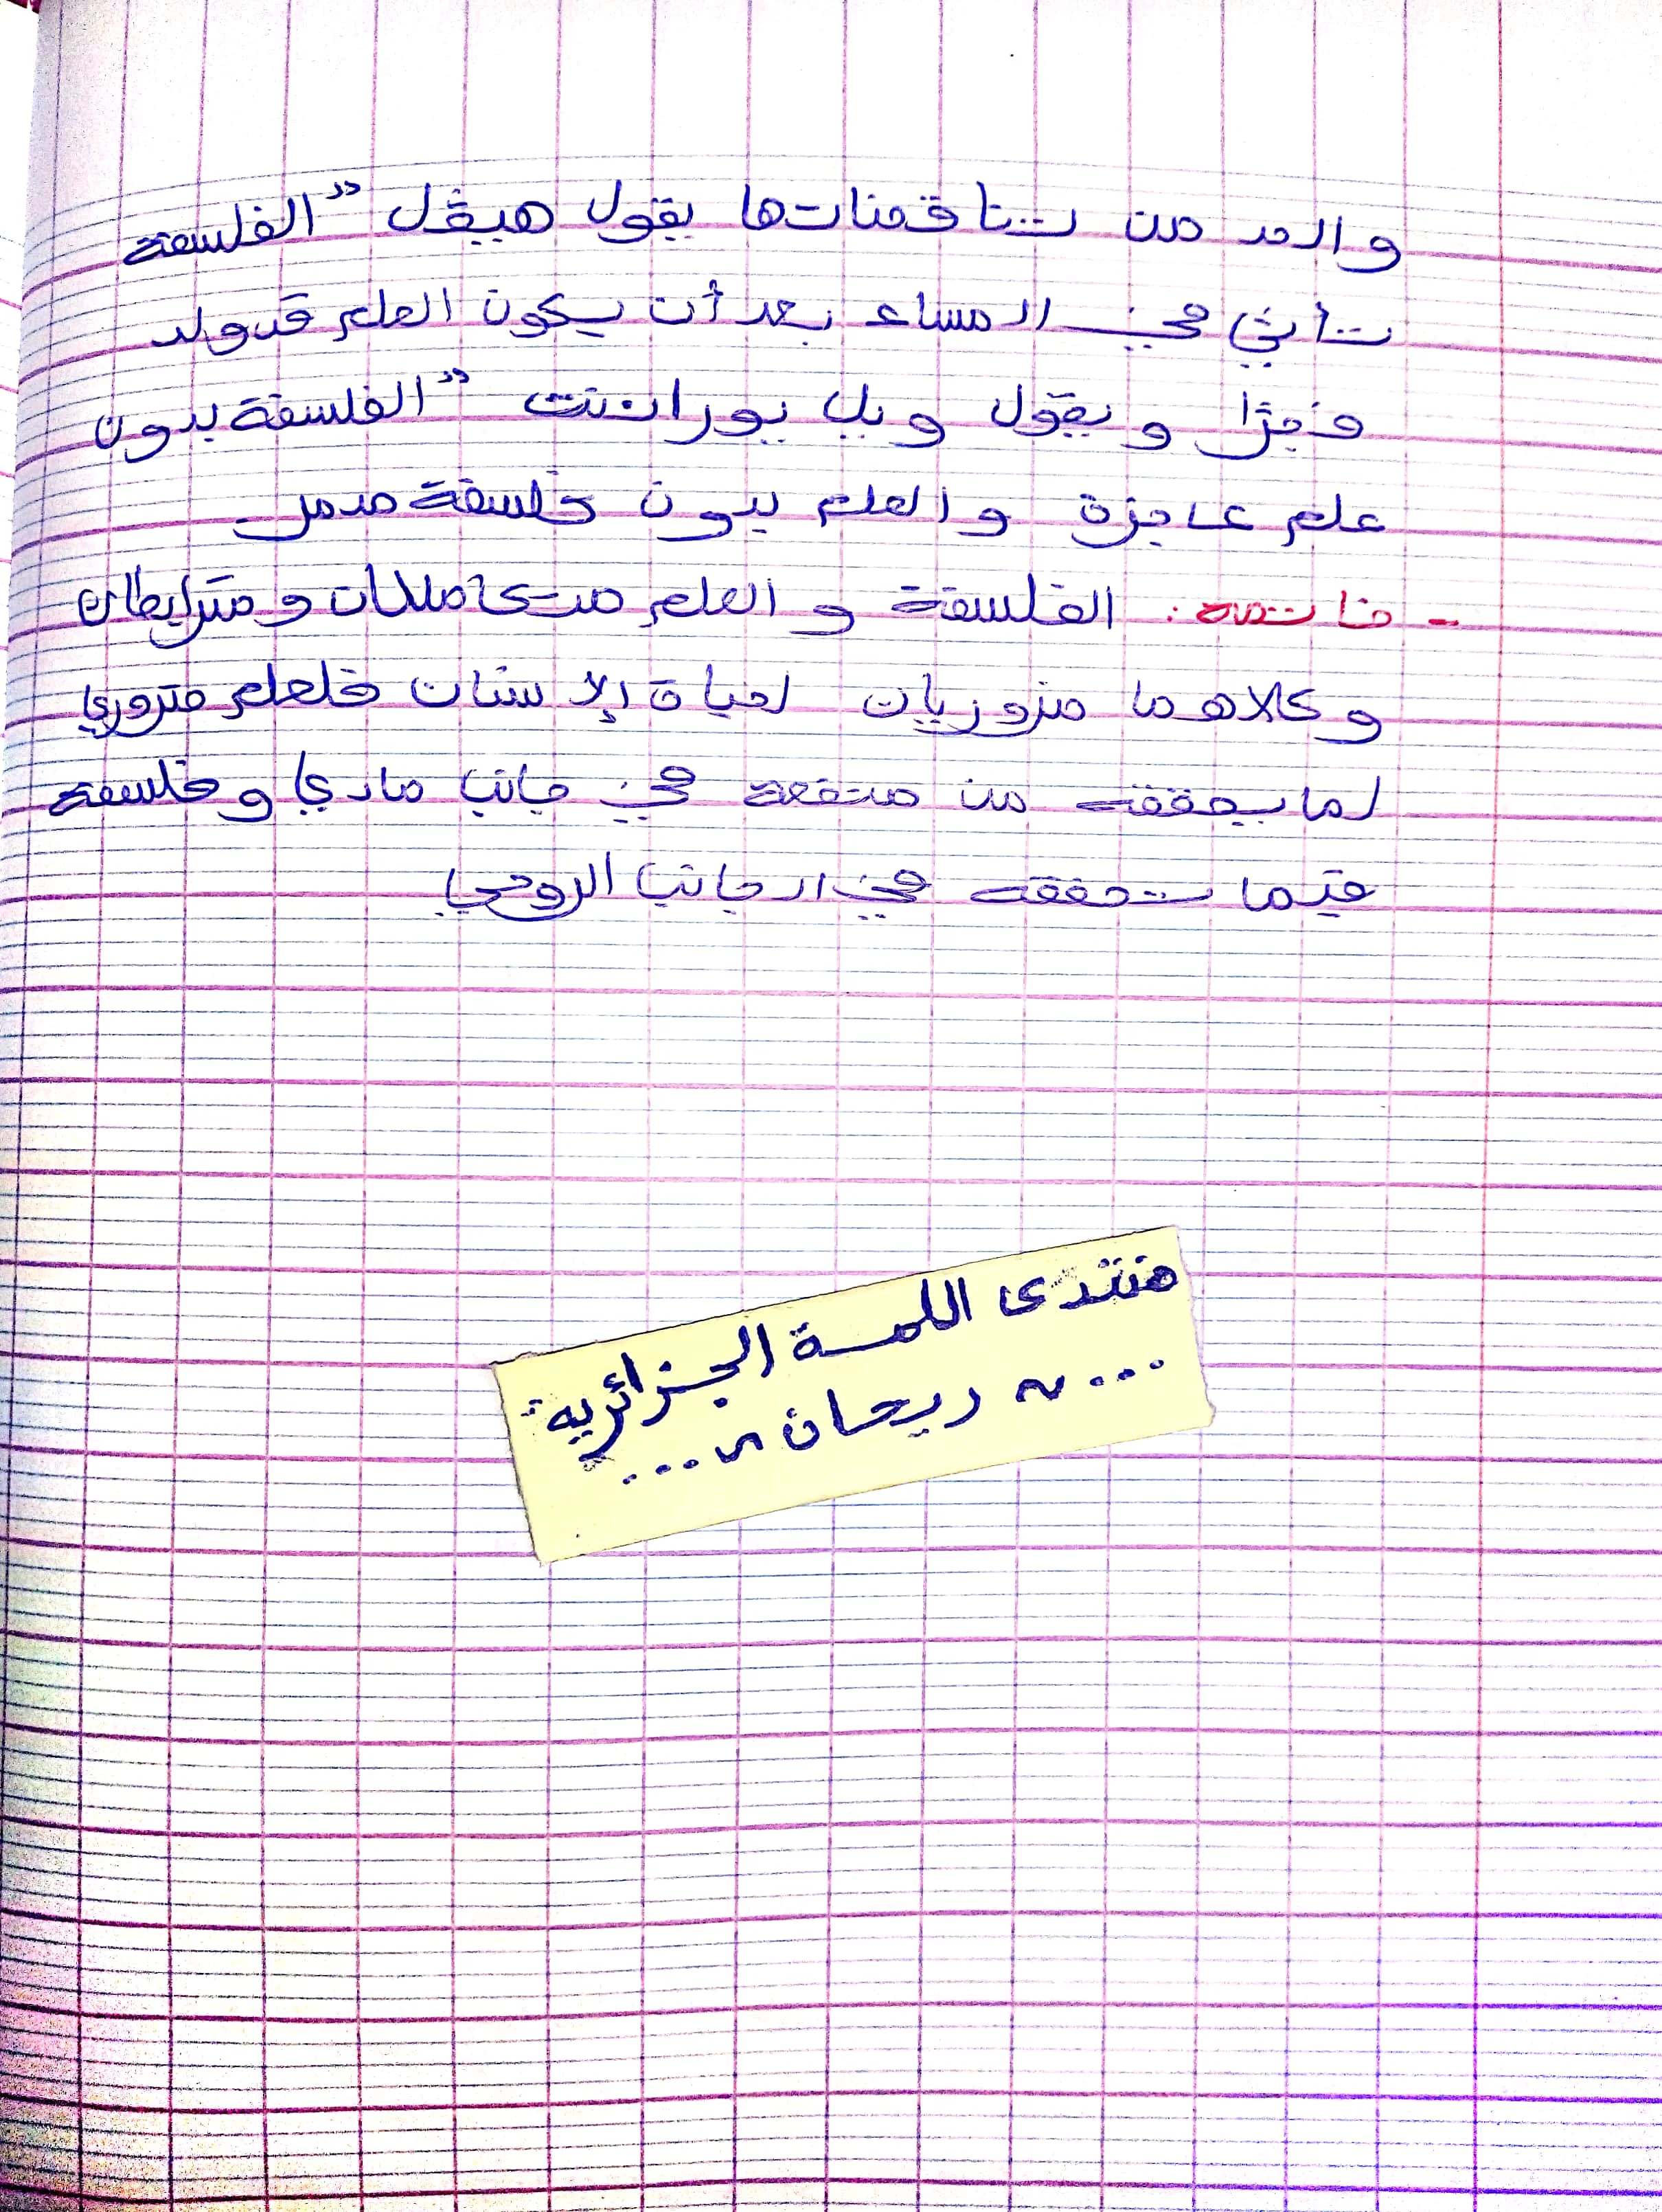 والحد من تناقضاتها يقول هيقل "الفلسفة
تأتي في المساء بعد أن يكون العلم قد ولد
فجرًا ويقول ويل بورانت "الفلسفة بدون
علم عاجزة والعلم بدون فلسفة مدمر
- خاتمة: الفلسفة و العلم متكاملان و مترابطان
وكلاهما ضروريان لحياة الإنسان فلعلم ضروري
لما يحققه من منفعة في جانب مادي وفلسفة
فيما تحققه في الجانب الروحي
منتدى اللمسة الجزائرية
...~ ريحان ~...